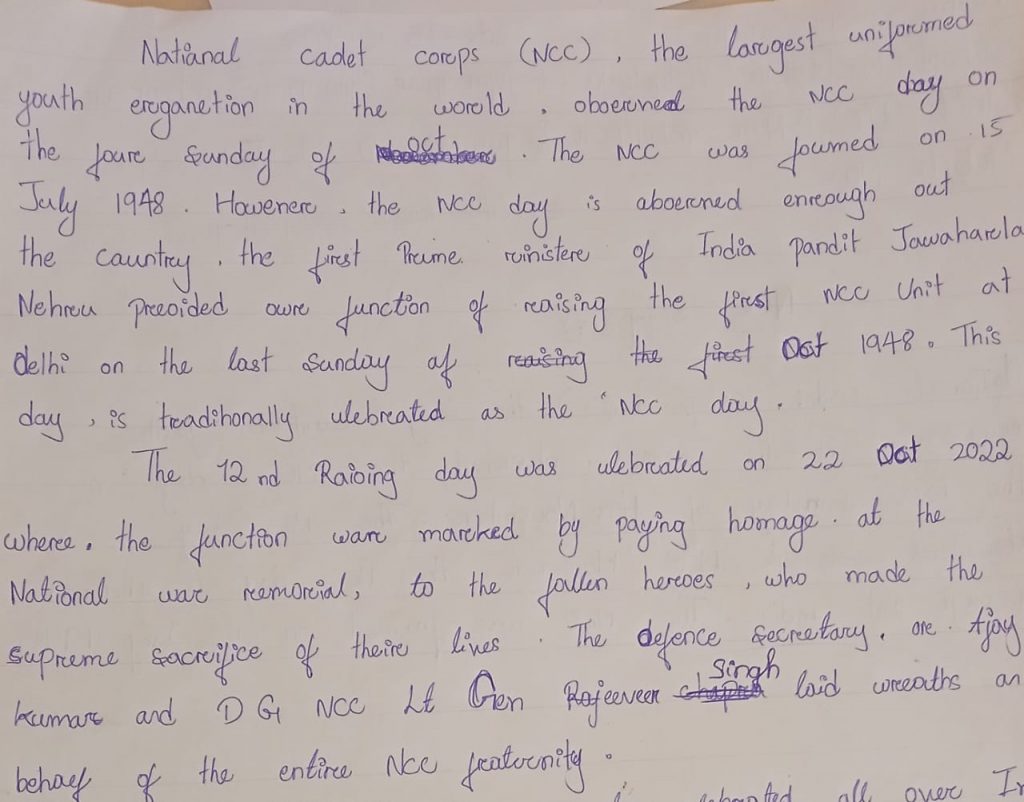 National cadet corops (NCC), the lorogest uniforomed
youth eroganetion in the worold, oboerened the NCC day on
the foure Sunday of oct. The NCC was foumed on 15
July 1948. Howenere, the NCC day is aboerened enreough out
the cauntrey, the first Preume ministere of India pandit Jawaharela
Nehreu preeoided owre function of reaising the first NCC Unit at
delhi on the last Sunday of reaising the first Oct 1948. This
day, is treadihonally ulebreated as the NCC day.
The 12 nd Raioing day was ulebreated on 22 Oct 2022
wheree, the function ware mareked by paying homage. at the
National ware remoreial, to the fallen heroes, who made the
supreme sacreifice of theire lives. The defence Secreetary, are Ajay
kumare and D G NCC Lt Gen Rajeeveer Singh laid wreeaths an
behaef of the entiree Ncc frateronity.
all over